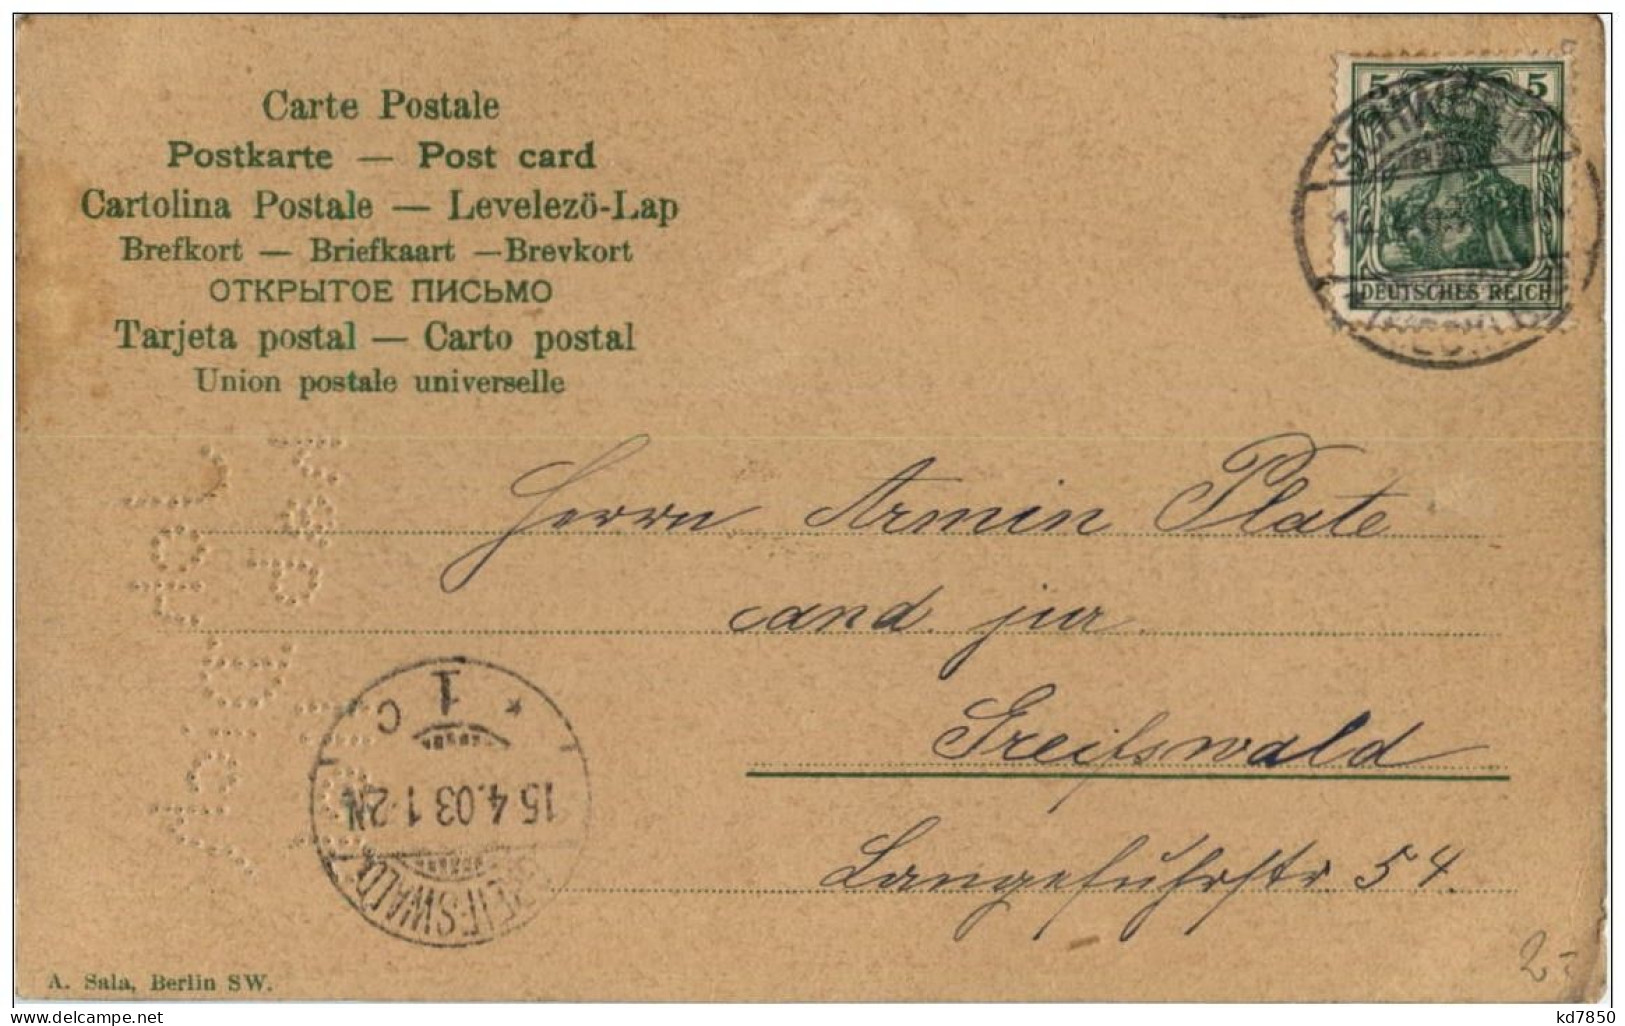 Carte Postale
Postkarte — Post card
Cartolina Postale — Levelezö-Lap
Brefkort — Briefkaart —Brevkort
ОТКРЫТОЕ ПИСЬМО
Tarjeta postal — Carto postal
Union postale universelle
5 5
DEUTSCHES REICH
Herrn Armin Plate
cand. jur
Greifswald
Langefuhrstr 54.
1
* C
15.4.03 1-2N
GREIFSWALD
A. Sala, Berlin SW.
2-
kd7850